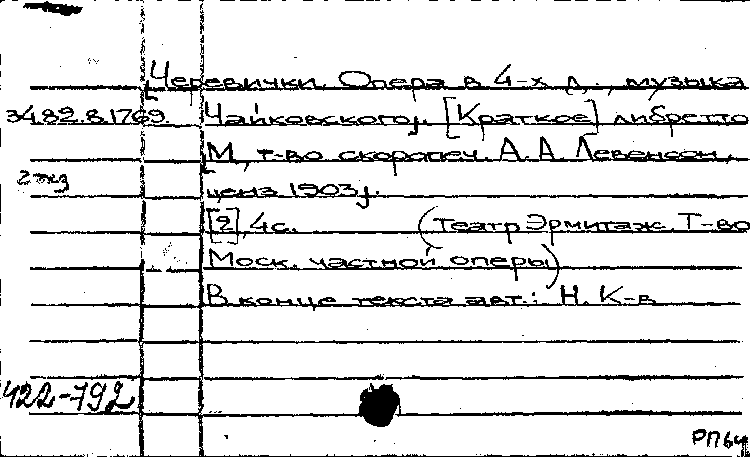 Черевички. Опера в 4-х д., музыка
34.82.8.1769. Чайковского. [Краткое] либретто
М., т-во скоропеч. А. А. Левенсон,
2 экз
ценз 1903.
[2], 4с. (Театр Эрмитаж. Т-во
Моск. частной оперы)
В конце текста авт.: Н. К-в
422-792
РП64